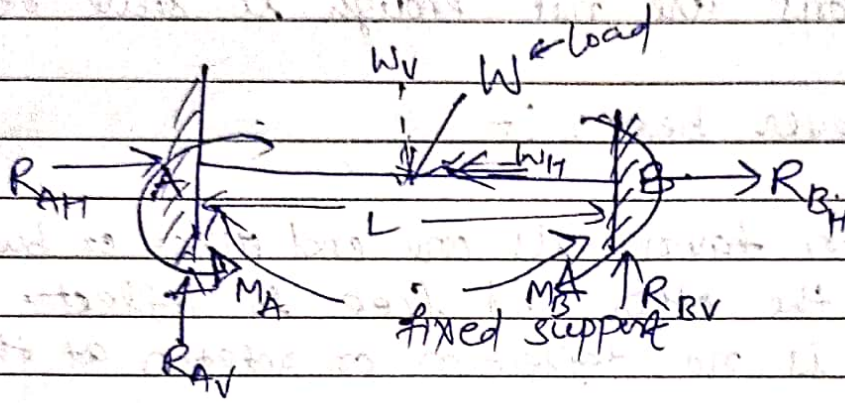 W_V W ← Load
W_H
R_AH A B R_BH
L
M_A M_B R_BV
fixed support
R_AV